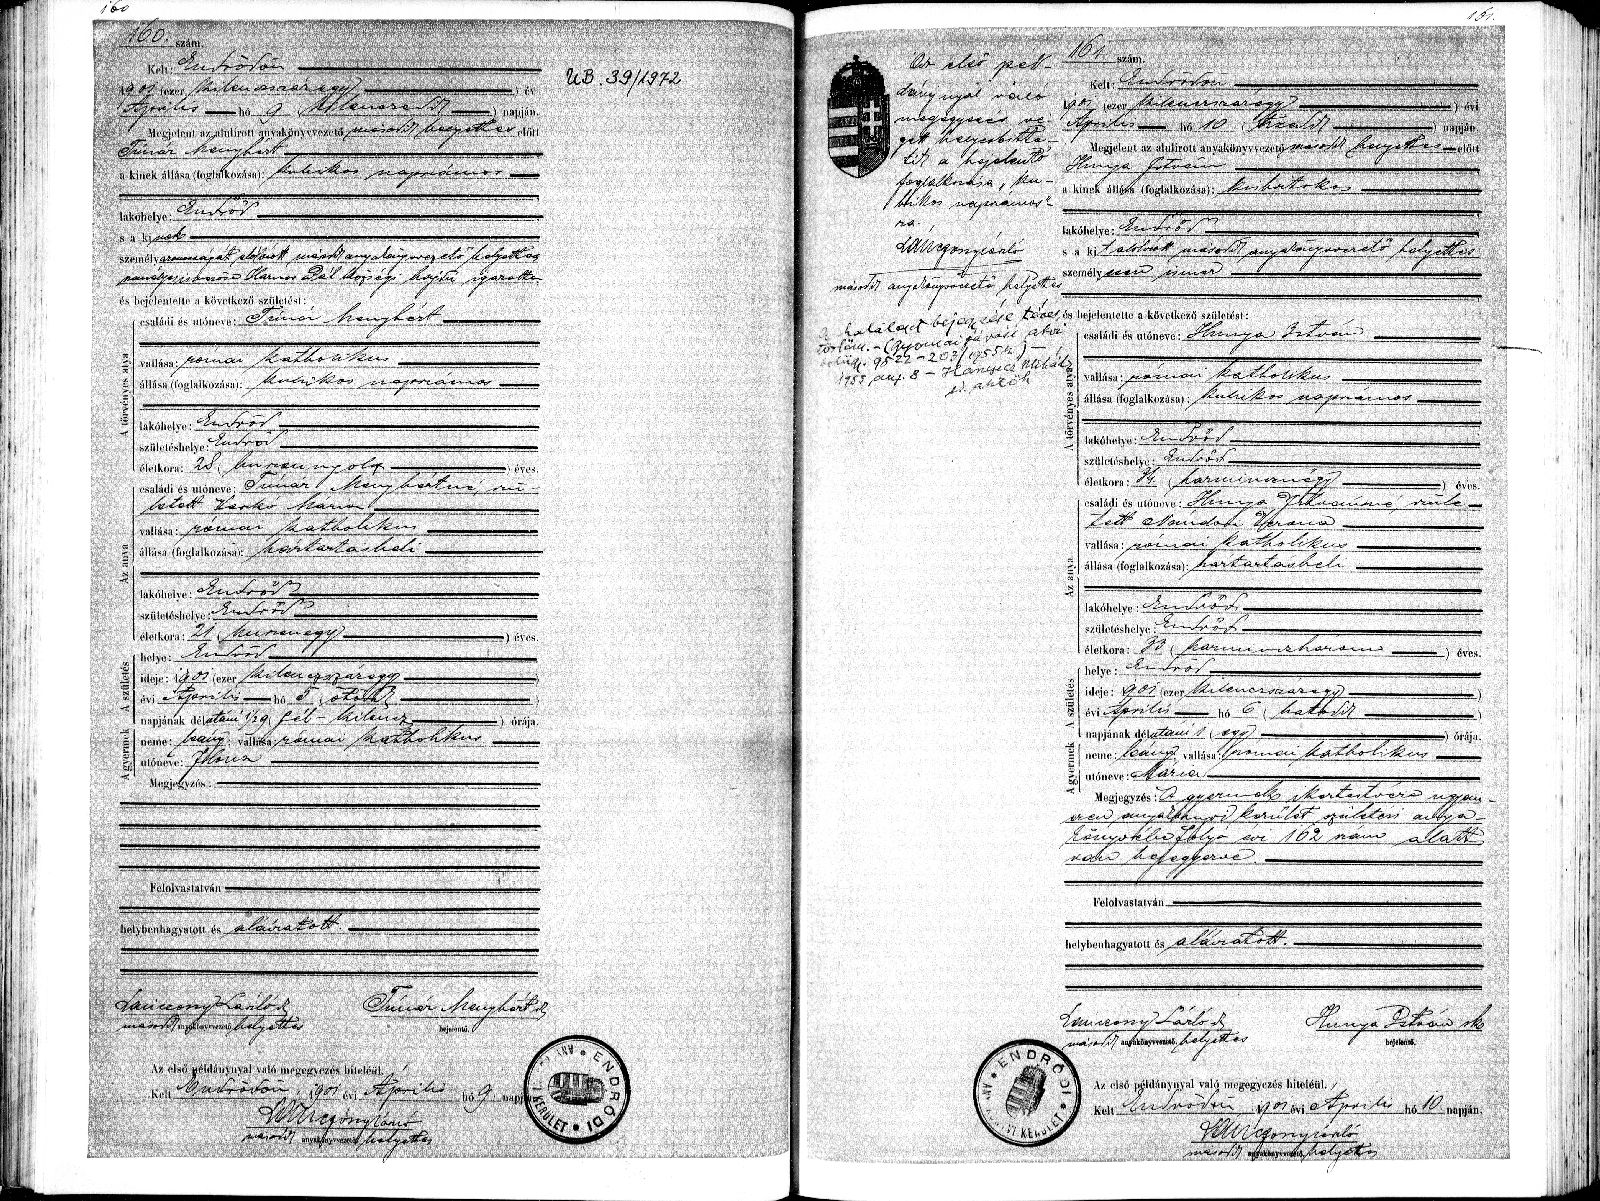 160
160. szám.
Kelt: Endrődön
1901 (ezer kilenczszázegy) év
Április hó 9 (kilenczedik) napján.
Megjelent az alulirott anyakönyvvezető második helyettes előtt
Timár Menyhért
a kinek állása (foglalkozása): kubikos napszámos
lakóhelye: Endrőd
s a kinek
személyazonosságát alólirott második anyakönyvvezető helyettes
Pál községi
és bejelentette a következő születést:
A törvényes atya
családi és utóneve: Timár Menyhért
vallása: római katholikus
állása (foglalkozása): kubikos napszámos
lakóhelye: Endrőd
születéshelye: Endrőd
életkora: 28 (huszonnyolcz) éves.
Az anya
családi és utóneve: Timár Menyhértné, szü-
letett Mária
vallása: római katholikus
állása (foglalkozása): háztartásbeli
lakóhelye: Endrőd
születéshelye: Endrőd
életkora: 21 (huszonegy) éves.
A születés
helye: Endrőd
ideje: 1901 (ezer kilenczszázegy)
évi Április hó 5 (ötödik)
napjának délutáni 1/29 (fél-kilencz) órája.
A gyermek
neme: leány; vallása: római katholikus
utóneve: Ilona
Megjegyzés:
Felolvastatván
helybenhagyatott és aláiratott.
Lanczony László
második anyakönyvvezető helyettes
Timár Menyhért
bejelentő.
Az első példánynyal való megegyezés hiteléül.
Kelt Endrődön 1901 évi Április hó 9 napján
Lánczonyi László
második anyakönyvvezető helyettes
ENDRŐDI
KERÜLET
UB. 39/1972
161.
161. szám.
Az első pél-
dánynyal való
megegyezés vé-
gett
a bejelentő
foglalkozása, ku-
bikos napszámos-
ra.
Lánczonyi László
második anyakönyvvezető helyettes
A haláleset bejegyzése téves,
törlöm. - (Gyomai járási
9522-203/1955
1955. aug. 8 -
Kelt: Endrődön
1901 (ezer kilenczszázegy) évi
Április hó 10 (tizedik) napján
Megjelent az alulirott anyakönyvvezető második helyettes előtt
Hunya István
a kinek állása (foglalkozása):
lakóhelye: Endrőd
s a kit alólirott második anyakönyvvezető helyettes
személyesen ismer
és bejelentette a következő születést:
A törvényes atya
családi és utóneve: Hunya István
vallása: római katholikus
állása (foglalkozása): kubikos napszámos
lakóhelye: Endrőd
születéshelye: Endrőd
életkora: 34 (harmincznégy) éves.
Az anya
családi és utóneve: Hunya Istvánné, szüle-
tett Verona
vallása: római katholikus
állása (foglalkozása): háztartásbeli
lakóhelye: Endrőd
születéshelye: Endrőd
életkora: 33 (harminczhárom) éves.
A születés
helye: Endrőd
ideje: 1901 (ezer kilenczszázegy)
évi Április hó 6 (hatodik)
napjának délutáni 1 (egy) órája.
A gyermek
neme: leány; vallása: római katholikus
utóneve: Mária
Megjegyzés: A gyermek ikertestvére ugyan-
ezen anyakönyvi kerület születési anya-
könyvében folyó évi 162 szám alatt
van bejegyezve
Felolvastatván
helybenhagyatott és aláiratott.
Lanczony László
második anyakönyvvezető helyettes
Hunya István sk
bejelentő.
Az első példánynyal való megegyezés hiteléül.
Kelt Endrődön 1901 évi Április hó 10 napján.
Lánczonyi László
második anyakönyvvezető helyettes
ENDRŐDI
KERÜLET